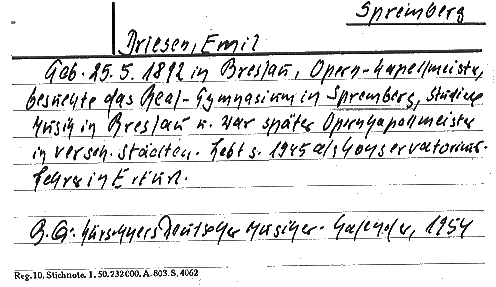 Spremberg
Driesen, Emil
Geb. 25. 5. 1892 in Breslau, Opern-Kapellmeister,
besuchte das Real-Gymnasium in Spremberg, studierte
Musik in Breslau u. war später Opernkapellmeister
in versch. Städten. Lebt s. 1945 als Konservatoriums-
lehrer in Erfurt.
B. Gr. Kürschners Deutscher Musiker-Kalender, 1954
Reg. 10. Stichnote. 1. 50. 232 000. A. 803. S. 4062